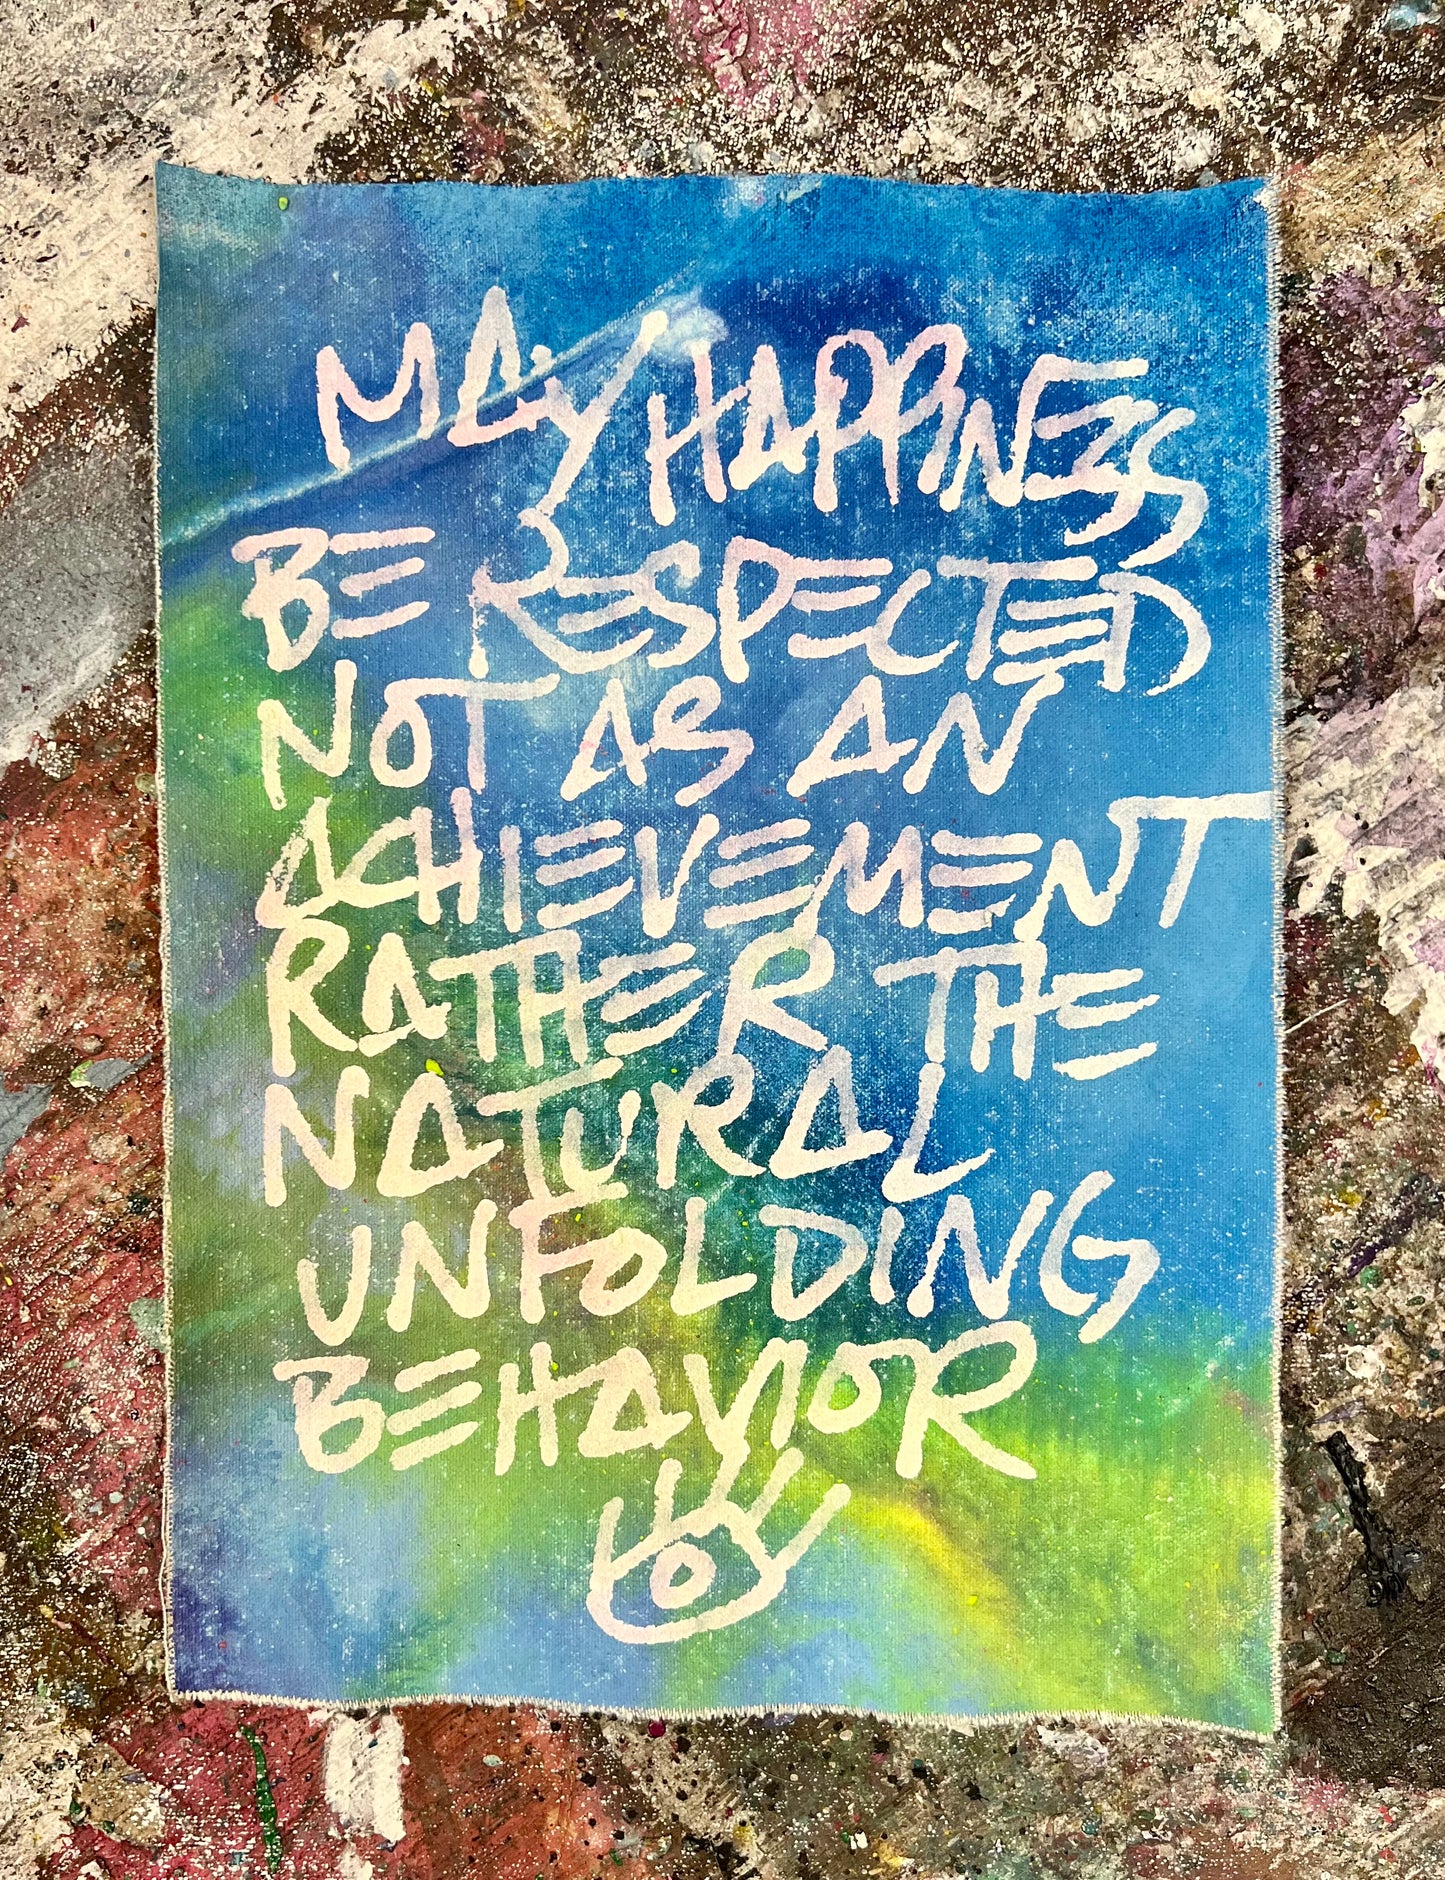 MAY HAPPINESS
BE RESPECTED
NOT AS AN
ACHIEVEMENT
RATHER THE
NATURAL
UNFOLDING
BEHAVIOR